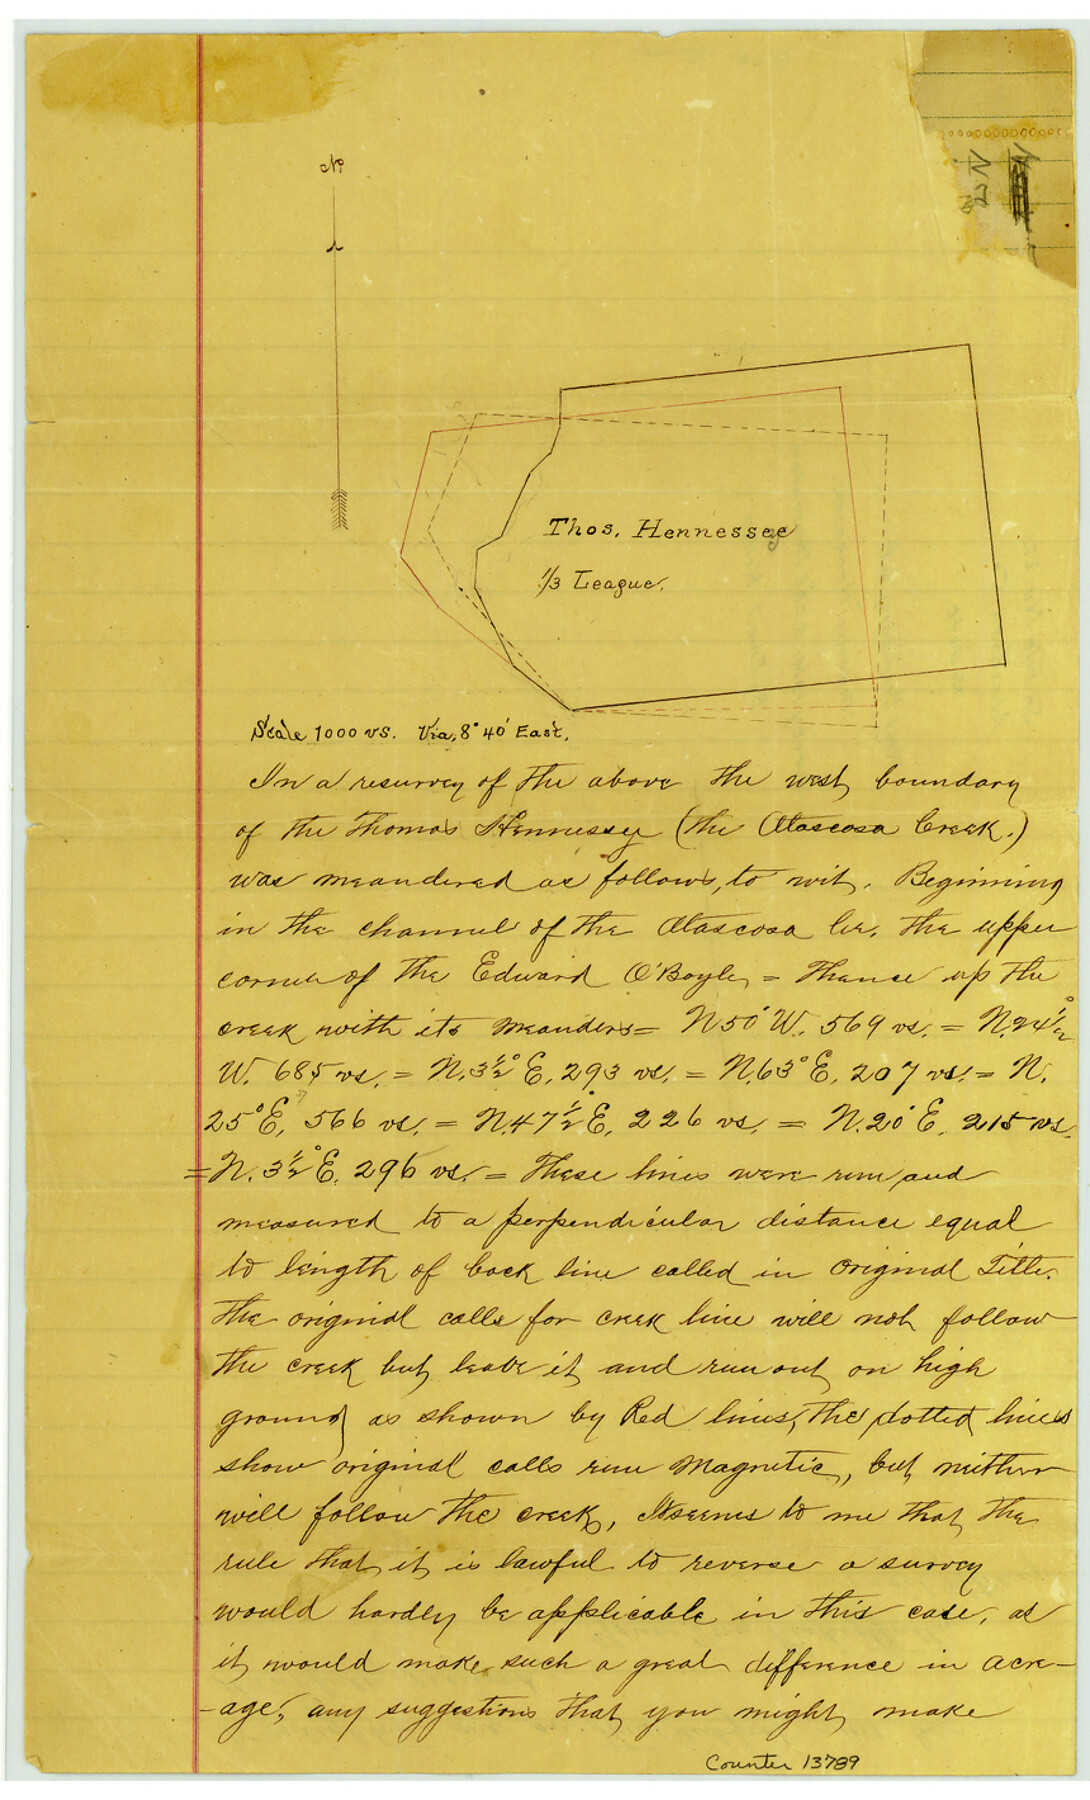 N.
Thos. Hennessey
1/3 League.
Scale 1000 vs. Via, 8° 40' East.
In a resurvey of the above the west boundary
of the Thomas Hennessey (the Atascosa Creek.)
was meandered as follows, to wit. Beginning
in the channel of the Atascosa Cre. the upper
corner of the Edward O'Boyle = thence up the
creek with its meanders = N 50° W. 569 vs. = N. 24 1/2°
W. 685 vs. = N. 3 1/2° E. 293 vs. = N. 63° E. 207 vs. = N.
25° E. 566 vs. = N. 47 1/2° E. 226 vs. = N. 20° E. 215 vs.
= N. 3 1/2° E. 296 vs. = These lines were run and
measured to a perpendicular distance equal
to length of back line called in original Title.
The original calls for creek line will not follow
the creek but leave it and run out on high
ground as shown by Red lines, the dotted lines
show original calls run Magnetic, but neither
will follow the creek, It seems to me that the
rule that it is lawful to reverse a survey
would hardly be applicable in this case, as
it would make such a great difference in acre-
-age, any suggestions that you might make
Counter 13789